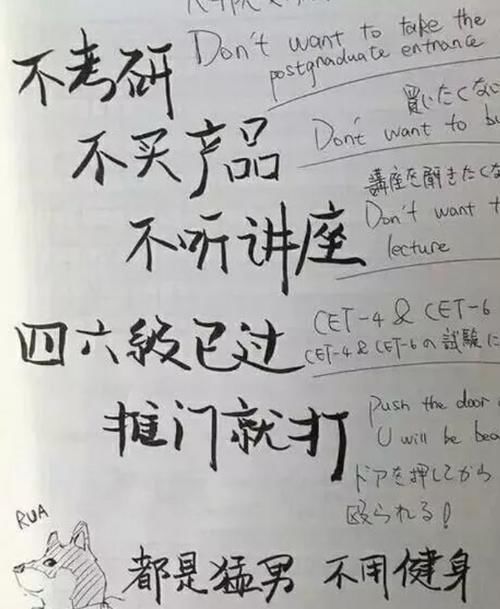 不考研
Don't want to take the
postgraduate entrance
不买产品
買いたくない
Don't want to
不听讲座
講座を聞きたくな
Don't want
lecture
四六级已过
CET-4 & CET-6
CET-4 & CET-6の試験に
推门就打
Push the door
U will be
ドアを押してから
殴られる!
RUA
都是猛男 不用健身